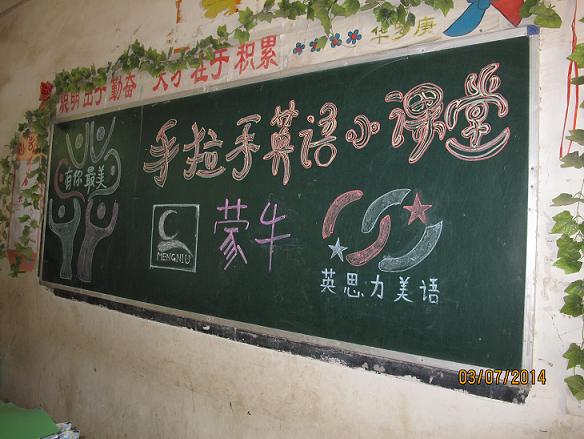 聪明出于勤奋 天才在于积累
华罗庚
手拉手英语小课堂
有你最美
MENGNIU
蒙牛
英思力美语
03/07/2014